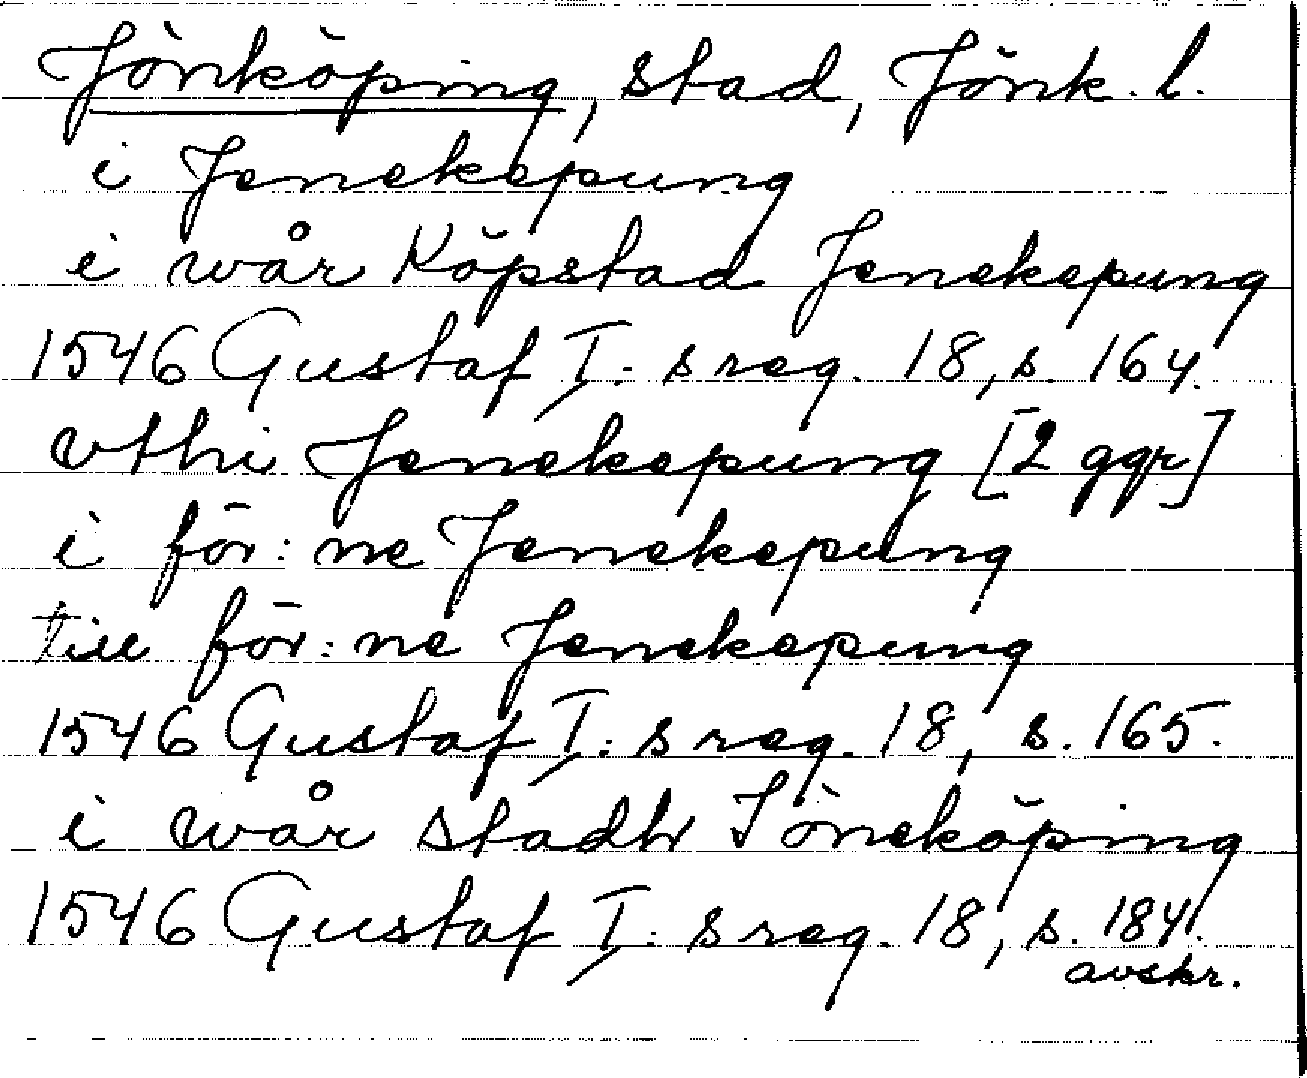 Jönköping, stad, Jönk. l.
i Jenekepung
i wår Köpstad Jenekepung
1546 Gustaf I:s reg. 18, s. 164.
vthi Jenekepung [2 ggr]
i för:ne Jenekepung
till för:ne Jenekepung
1546 Gustaf I:s reg. 18, s. 165.
i wår stadh Jöneköping
1546 Gustaf I:s reg. 18, s. 184.
avskr.